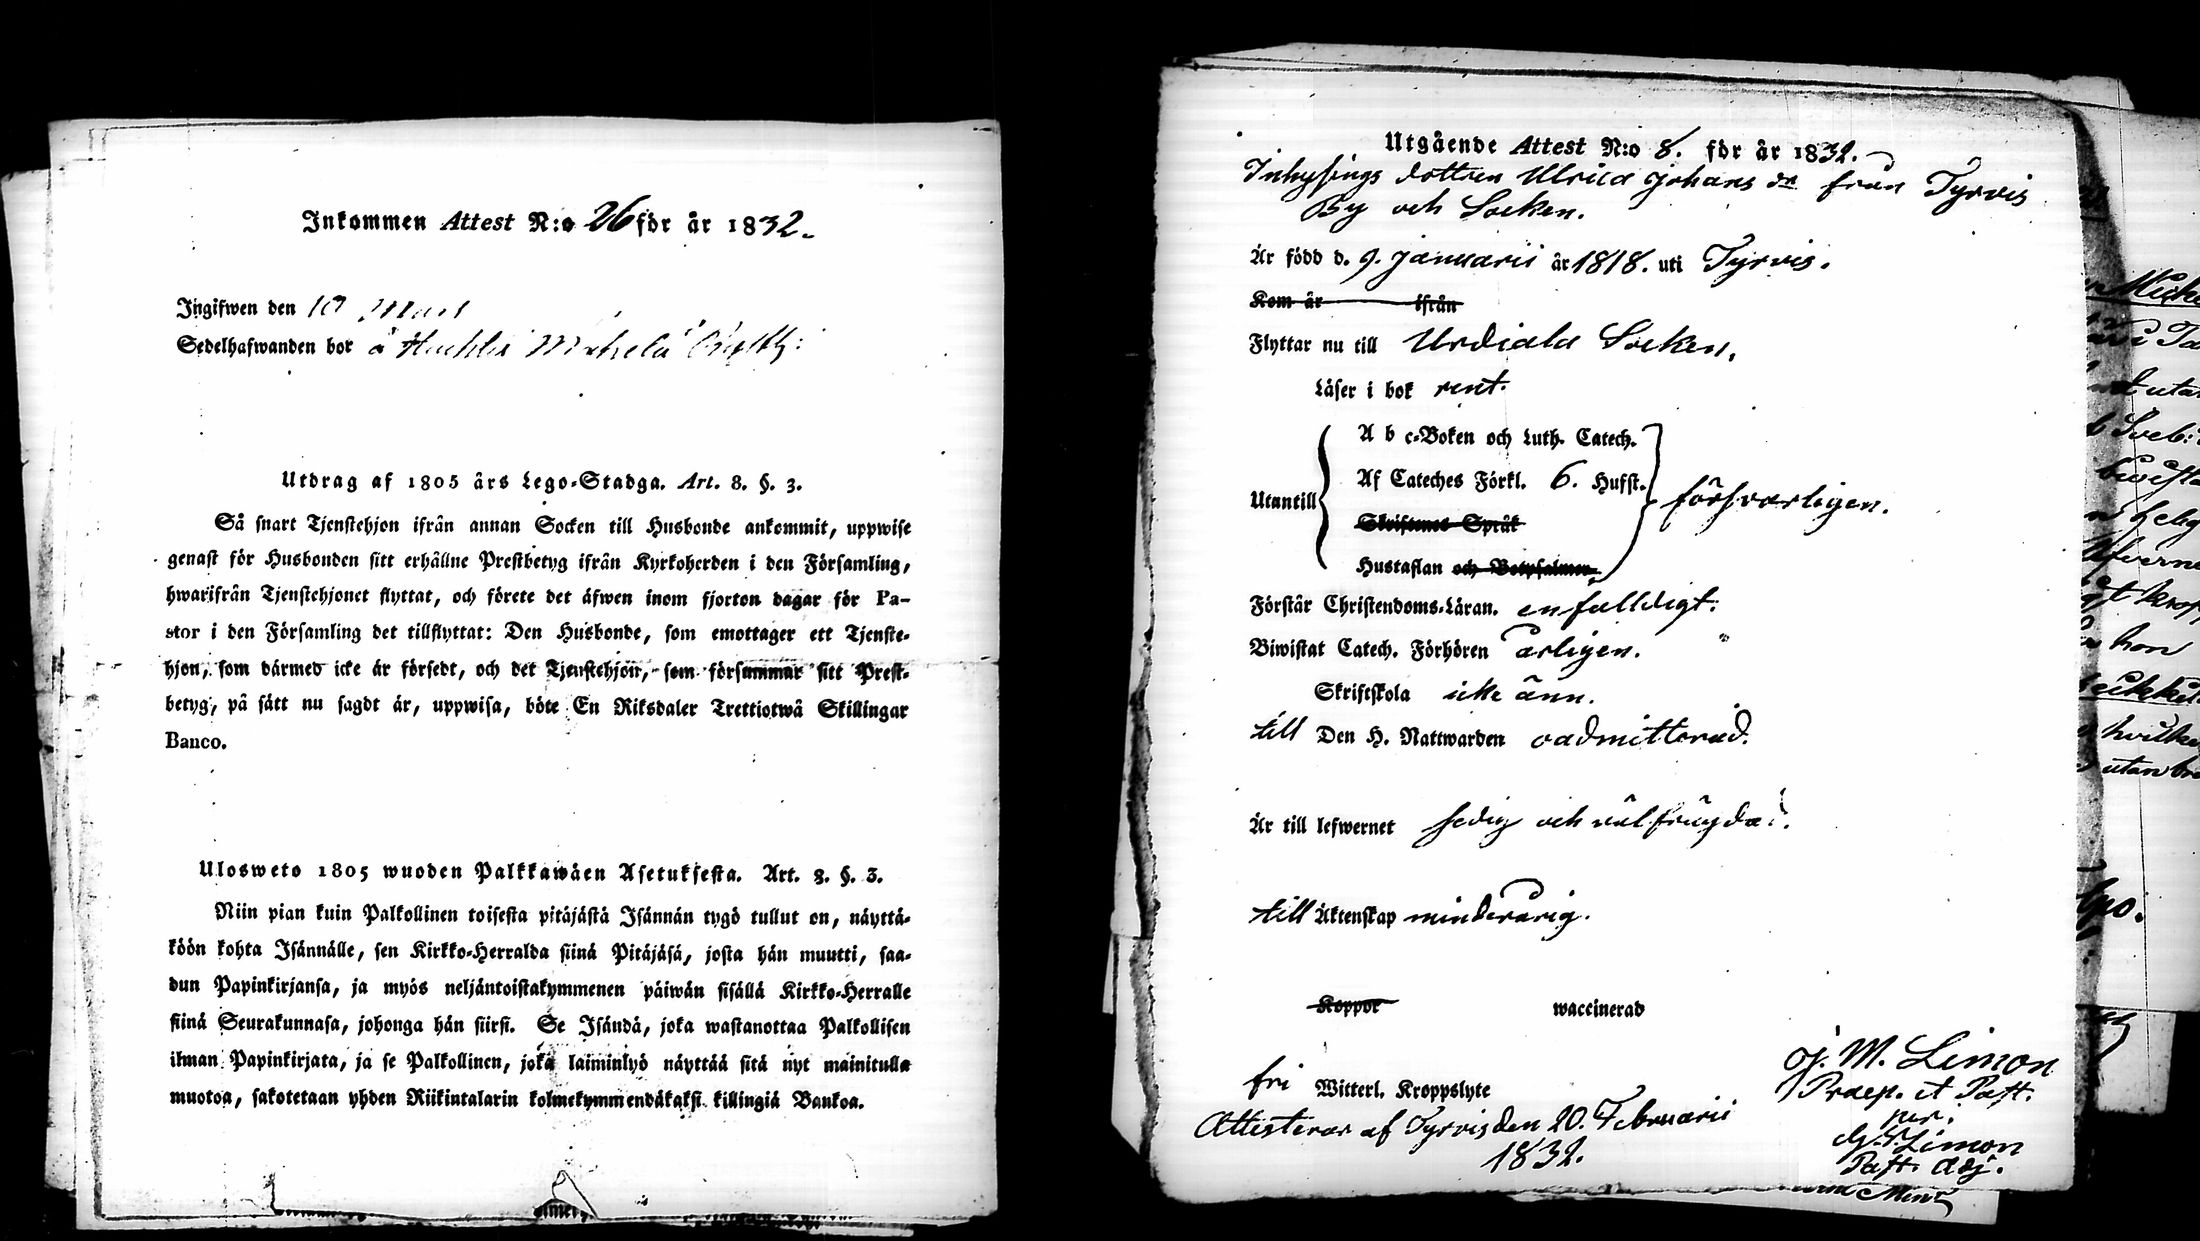 Inkommen Attest N:o 26 för år 1832.
Ingifwen den 10 Mars
Sedelhafwanden bor å
Utdrag af 1805 års Lego-Stadga. Art. 8. §. 3.
Så snart Tjenstehjon ifrån annan Socken till Husbonde ankommit, uppwise
genast för Husbonden sitt erhållne Prestbetyg ifrån Kyrkoherden i den Församling,
hwarifrån Tjenstehjonet flyttat, och förete det äfwen inom fjorton dagar för Pa-
stor i den Församling det tillflyttat: Den Husbonde, som emottager ett Tjenste-
hjon, som därmed icke är försedt, och det Tjenstehjon, som försummar sitt Prest-
betyg, på sätt nu sagdt är, uppwisa, böte En Riksdaler Trettiotwå Skillingar
Banco.
Ulosweto 1805 wuoden Palkkawäen Asetuksesta. Art. 8. §. 3.
Niin pian kuin Palkollinen toisesta pitäjästä Isännän tygö tullut on, näyttä-
köön kohta Isännälle, sen Kirkko-Herralda siinä Pitäjäsä, josta hän muutti, saa-
dun Papinkirjansa, ja myös neljäntoistakymmenen päiwän sisällä Kirkko-Herralle
siinä Seurakunnasa, johonga hän siirsi. Se Isändä, joka wastanottaa Palkollisen
ilman Papinkirjata, ja se Palkollinen, joka laiminlyö näyttää sitä nyt mainitulla
muotoa, sakotetaan yhden Riikintalarin kolmekymmendäkaksi killingiä Bankoa.
Utgående Attest N:o 8. för år 1832.
Inhysings dottren Ulrica Johans dr från Tyrvis
By och Socken.
Är född d. 9. Januarii år 1818. uti Tyrvis.
Kom år ifrån
Flyttar nu till Urdiala Socken.
Läser i bok rent.
Utantill
A b c-Boken och Luth. Catech.
Af Cateches Förkl. 6. Hufst.
Skriftenes Språk
Hustaflan och Botpsalmen
försvarligen.
Förstår Christendoms-Läran. enfalldigt.
Biwistat Catech. Förhören årligen.
Skriftskola icke änn.
till Den H. Nattwarden oadmitterad.
Är till lefwernet sedig och välfrägdad.
till Äktenskap minderårig.
Koppor waccinerad
fri Witterl. Kroppslyte
Attesterar af Tyrvis den 20. Februarii
1832.
M. Limon
Praep. et Past.
per:
Limon
Past. adj.